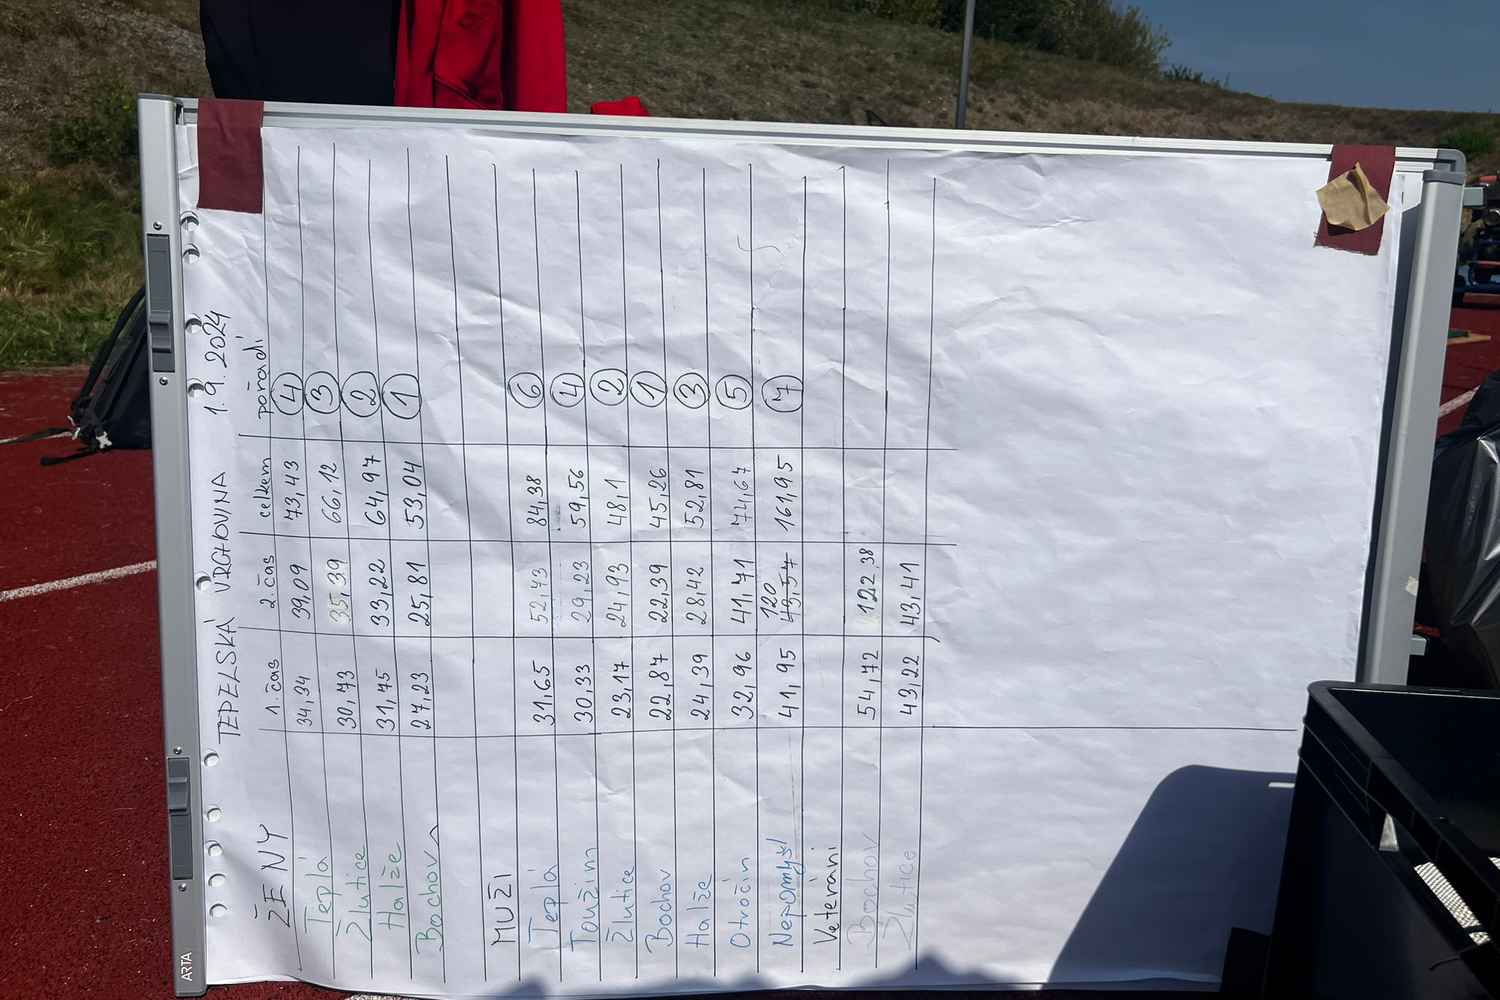 TEPELSKÁ VRCHOVINA 1.9.2024
ŽENY 1.čas 2.čas celkem pořadí
Teplá 34,34 39,09 73,43 4
Žlutice 30,73 35,39 66,12 3
Halže 31,75 33,22 64,97 2
Bochov 27,23 25,81 53,04 1
MUŽI
Teplá 31,65 52,73 84,38 6
Toužim 30,33 29,23 59,56 4
Žlutice 23,17 24,93 48,1 2
Bochov 22,87 22,39 45,26 1
Halže 24,39 28,42 52,81 3
Otročín 32,96 41,71 74,67 5
Nepomyšl 41,95 120 43,57 161,95 7
Veteráni
Bochov 54,72 122,38
Žlutice 43,22 43,41
ARTA